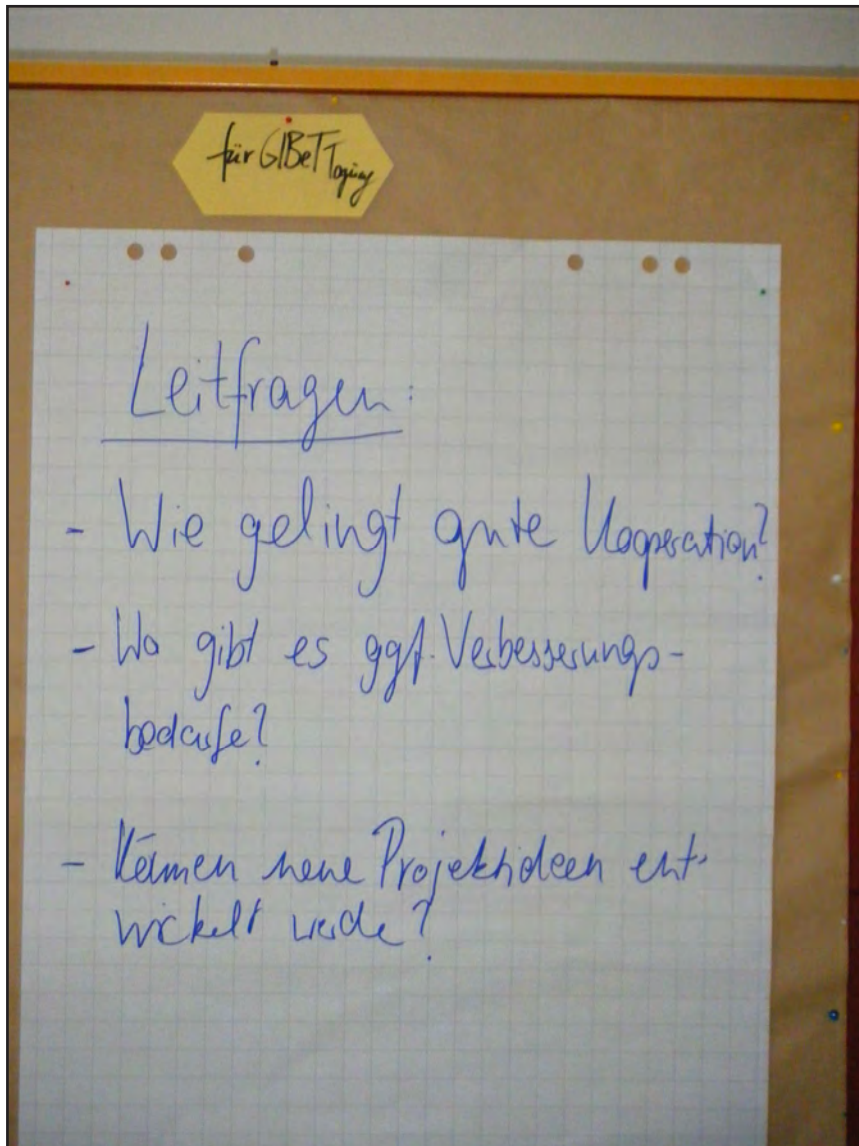 für GIBeT Tagung
Leitfragen:
- Wie gelingt gute Kooperation?
- Wo gibt es ggf. Verbesserungs-
bedarfe?
- Können neue Projektideen ent-
wickelt werde?